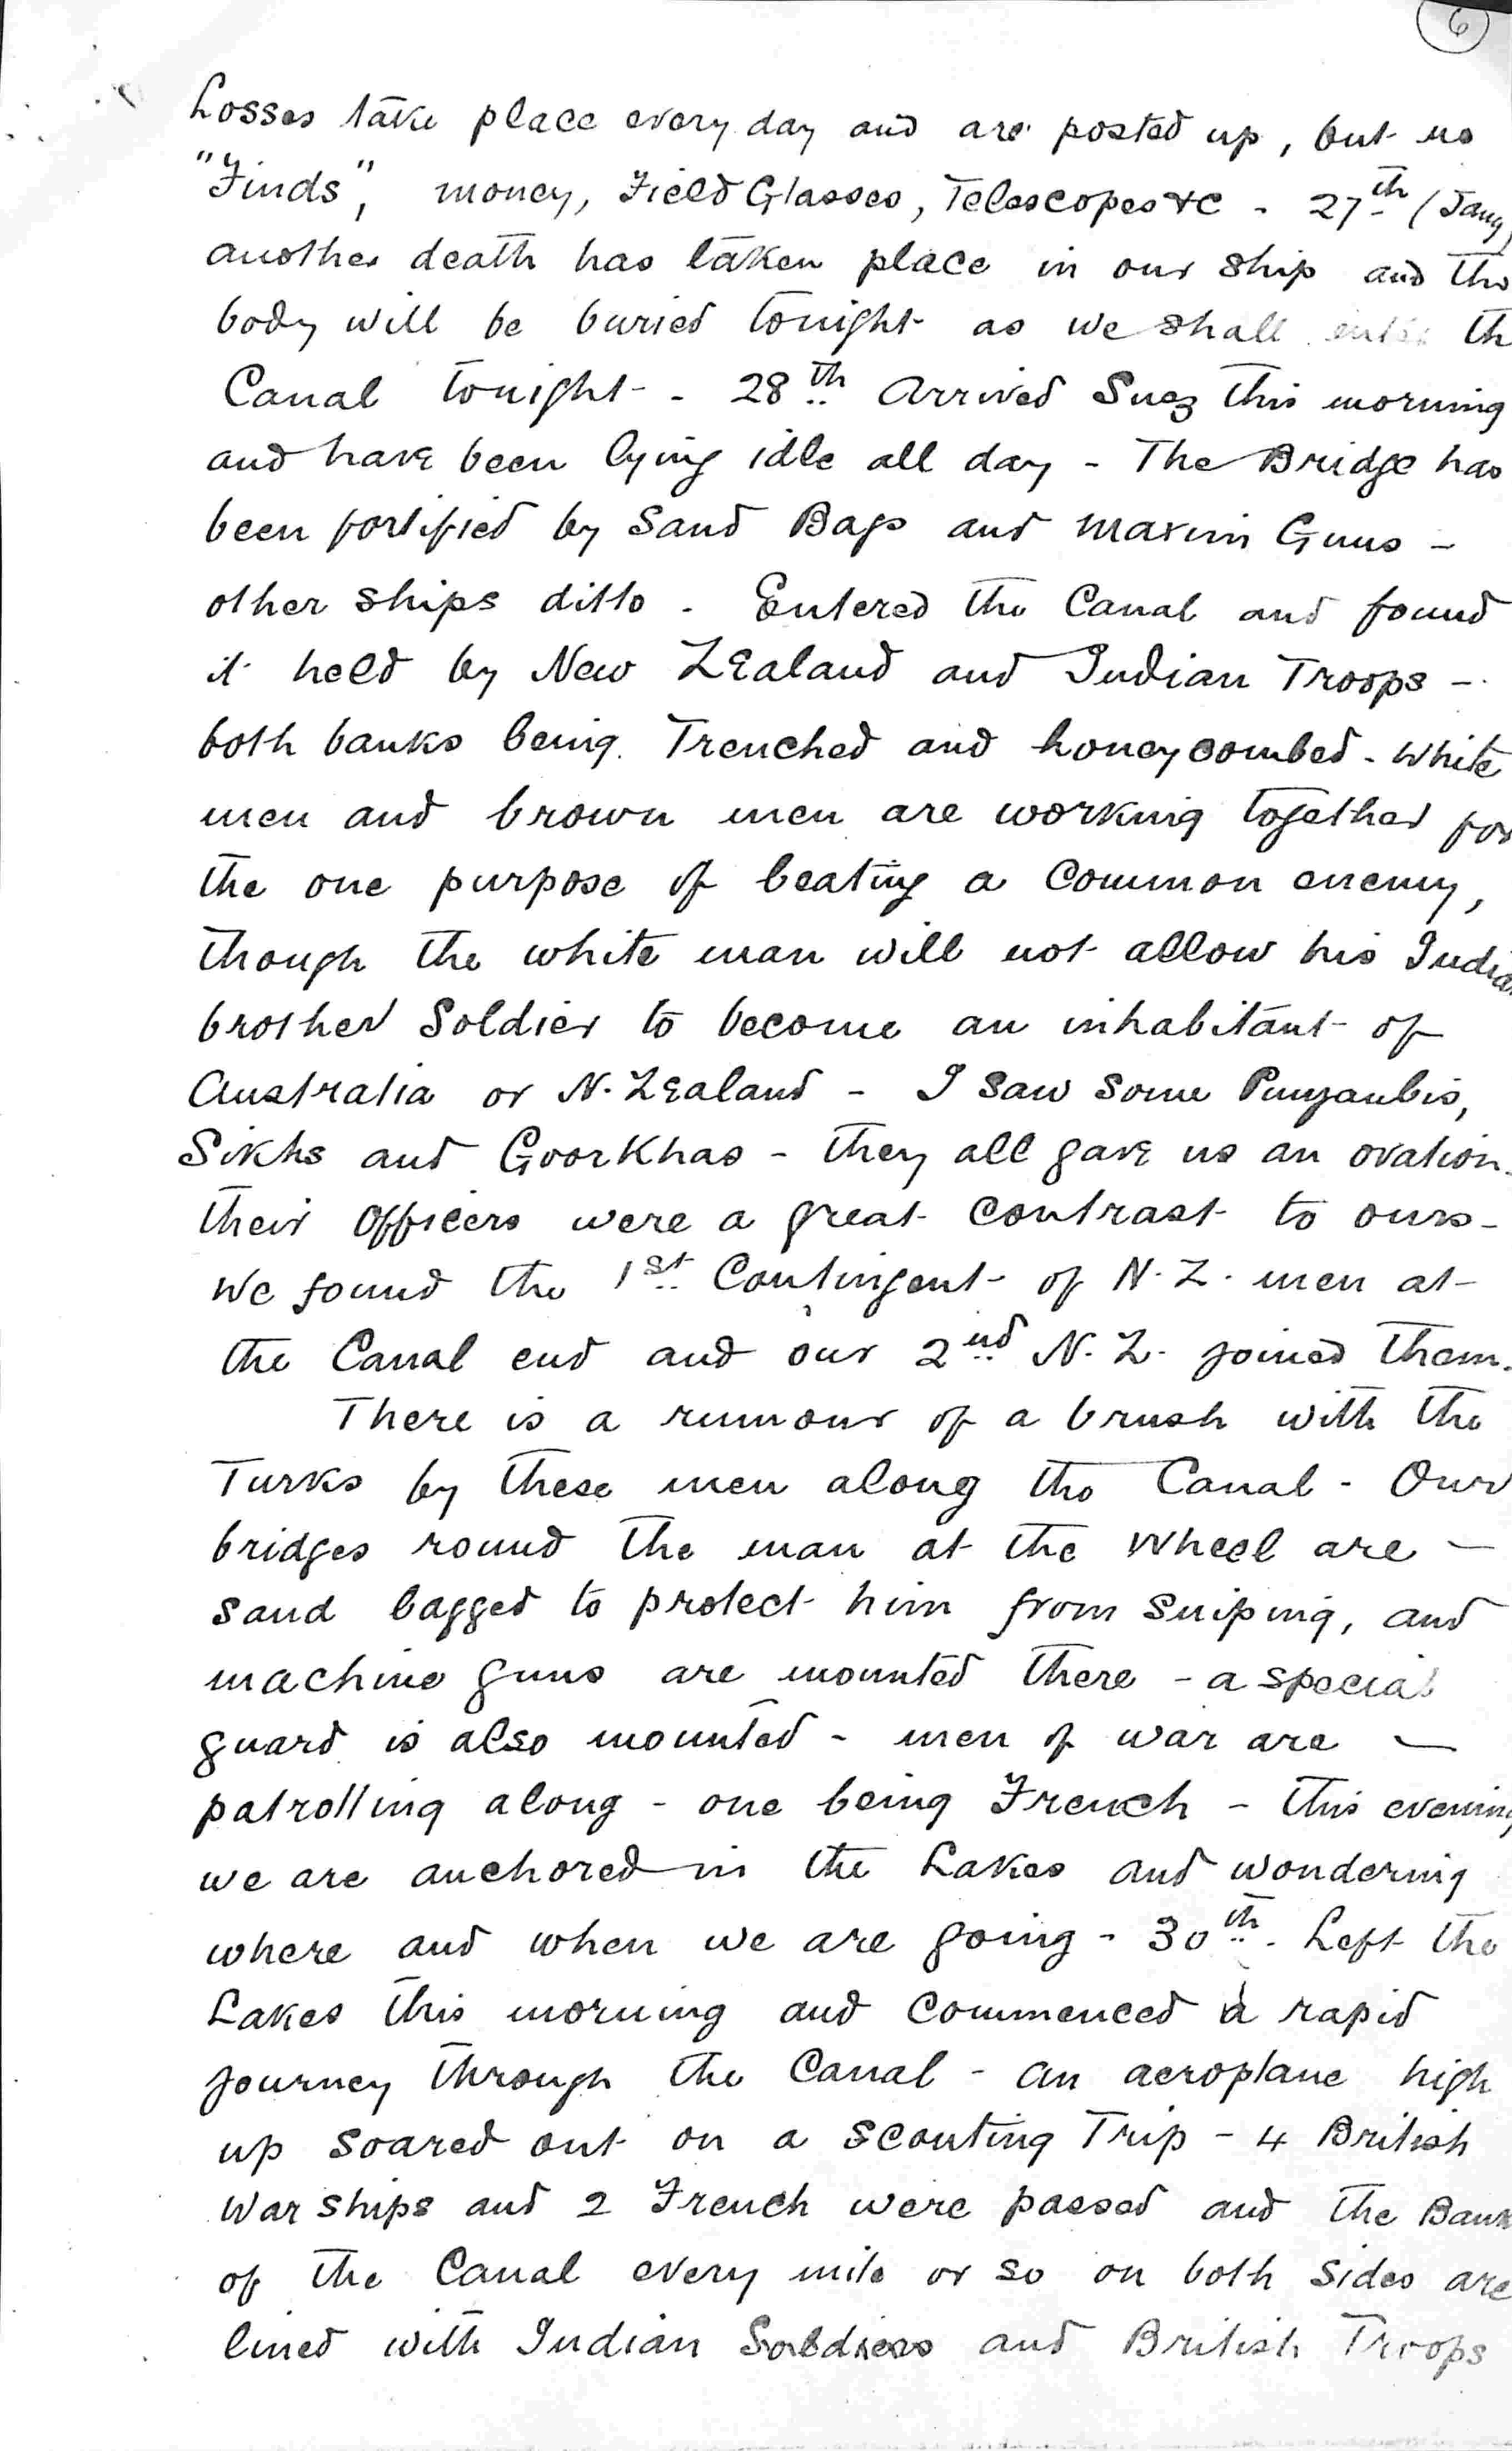 6
Losses take place every day and are posted up, but no
"Finds", money, Field Glasses, Telescopes &c - 27th (Jany)
another death has taken place in our ship and the
body will be buried tonight as we shall enter th
Canal tonight - 28th Arrived Suez this morning
and have been lying idle all day - The Bridge has
been fortified by Sand Bags and Maxim Guns -
other ships ditto - Entered the Canal and found
it held by New Zealand and Indian Troops -
both banks being Trenched and honeycombed - white
men and brown men are working together for
the one purpose of beating a Common enemy,
though the white man will not allow his Indian
brother Soldier to become an inhabitant of
Australia or N. Zealand - I saw some Punjaubis,
Sikhs and Goorkhas - they all gave us an ovation.
their Officers were a great contrast to ours -
We found the 1st Contingent of N.Z. men at
the Canal end and our 2nd N.Z. joined them.
There is a rumour of a brush with the
Turks by these men along the Canal - Our
bridges round the man at the wheel are -
sand bagged to protect him from sniping, and
machine guns are mounted there - a special
guard is also mounted - men of war are -
patrolling along - one being French - this evening
we are anchored in the Lakes and wondering
where and when we are going - 30th. Left the
Lakes this morning and commenced a rapid
journey through the Canal - an aeroplane high
up soared out on a scouting Trip - 4 British
War ships and 2 French were passed and the Bank
of the Canal every mile or so on both sides are
lined with Indian Soldiers and British Troops